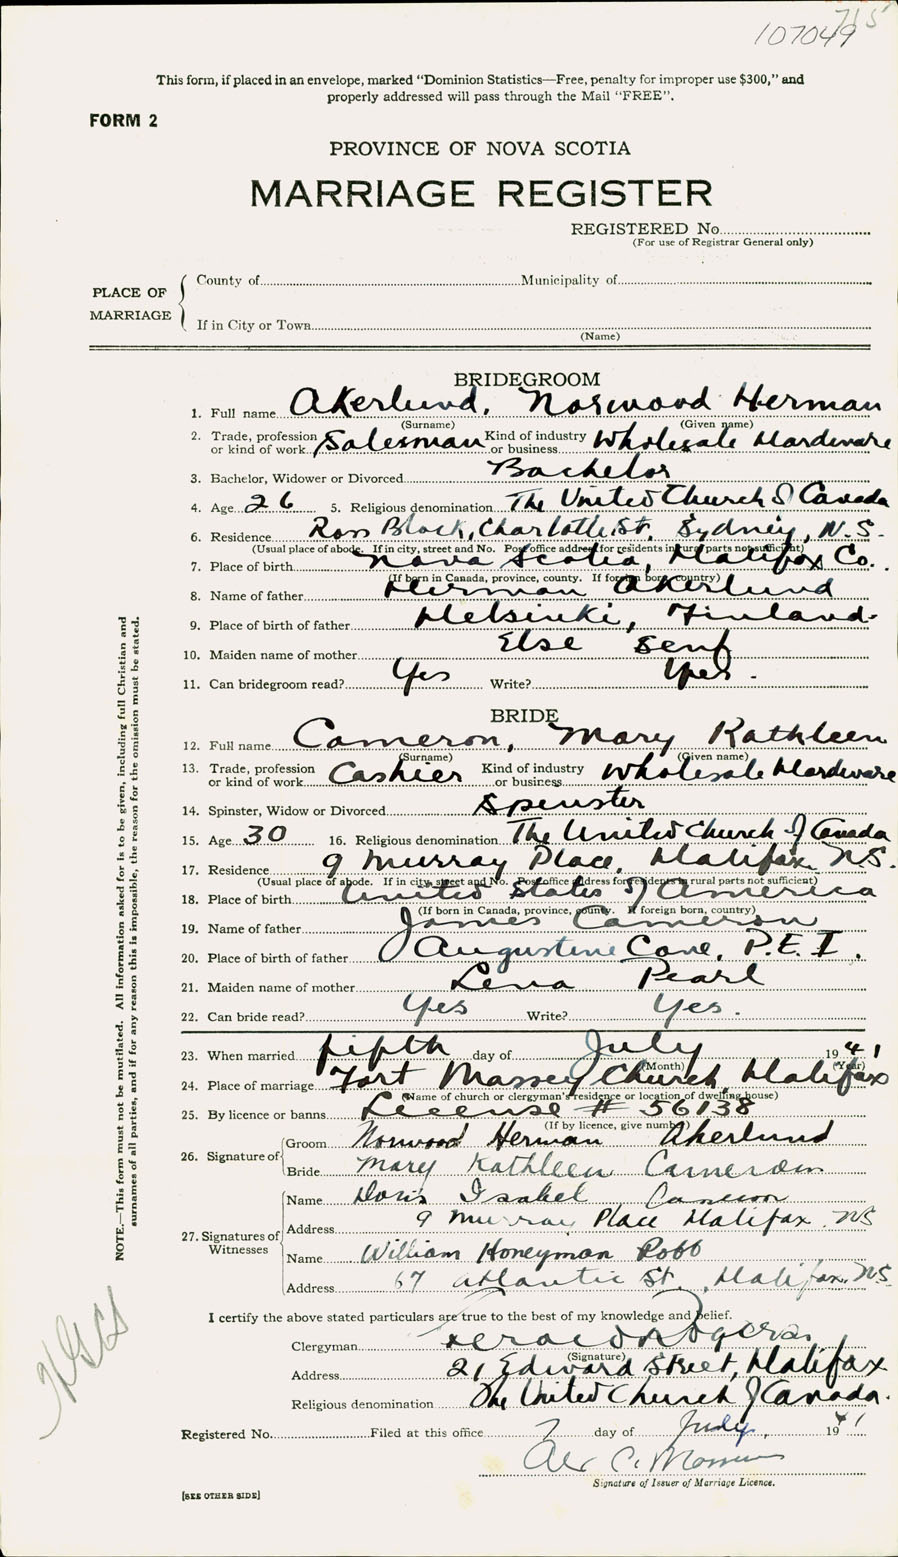 715
107049
This form, if placed in an envelope, marked "Dominion Statistics—Free, penalty for improper use $300," and
properly addressed will pass through the Mail "FREE".
FORM 2
PROVINCE OF NOVA SCOTIA
MARRIAGE REGISTER
REGISTERED No.
(For use of Registrar General only)
PLACE OF MARRIAGE
County of Municipality of
If in City or Town
(Name)
BRIDEGROOM
1. Full name Akerlund, Norwood Herman
(Surname) (Given name)
2. Trade, profession or kind of work Salesman Kind of industry or business Wholesale Hardware
3. Bachelor, Widower or Divorced Bachelor
4. Age 26 5. Religious denomination The United Church of Canada
6. Residence Ross Block, Charlotte St. Sydney, N.S.
(Usual place of abode. If in city, street and No. Post office address for residents in rural parts not sufficient)
7. Place of birth Nova Scotia, Halifax Co.
(If born in Canada, province, county. If foreign born, country)
8. Name of father Herman Akerlund
9. Place of birth of father Helsinki, Finland
10. Maiden name of mother Else Senf
11. Can bridegroom read? Yes Write? Yes.
BRIDE
12. Full name Cameron, Mary Kathleen
(Surname) (Given name)
13. Trade, profession or kind of work Cashier Kind of industry or business Wholesale Hardware
14. Spinster, Widow or Divorced Spinster
15. Age 30 16. Religious denomination The United Church of Canada
17. Residence 9 Murray Place, Halifax NS.
(Usual place of abode. If in city, street and No. Post office address for residents in rural parts not sufficient)
18. Place of birth United States of America
(If born in Canada, province, county. If foreign born, country)
19. Name of father James Cameron
20. Place of birth of father Augustine Cove, P.E.I.
21. Maiden name of mother Lena Pearl
22. Can bride read? Yes Write? Yes.
23. When married fifth day of July 1941
(Month) (Year)
24. Place of marriage Fort Massey Church, Halifax
(Name of church or clergyman's residence or location of dwelling house)
25. By licence or banns License # 56138
(If by licence, give number)
26. Signature of Groom Norwood Herman Akerlund
Bride Mary Kathleen Cameron
27. Signatures of Witnesses
Name Doris Isabel Cameron
Address 9 Murray Place Halifax NS
Name William Honeyman Robb
Address 67 Atlantic St., Halifax, NS.
I certify the above stated particulars are true to the best of my knowledge and belief.
Clergyman Rogers
(Signature)
Address 21 Edward Street, Halifax
Religious denomination The United Church of Canada.
Registered No. Filed at this office 7 day of July, 1941
Signature of Issuer of Marriage Licence.
[SEE OTHER SIDE]
NOTE.—This form must not be mutilated. All information asked for is to be given, including full Christian and
surnames of all parties, and if for any reason this is impossible, the reason for the omission must be stated.